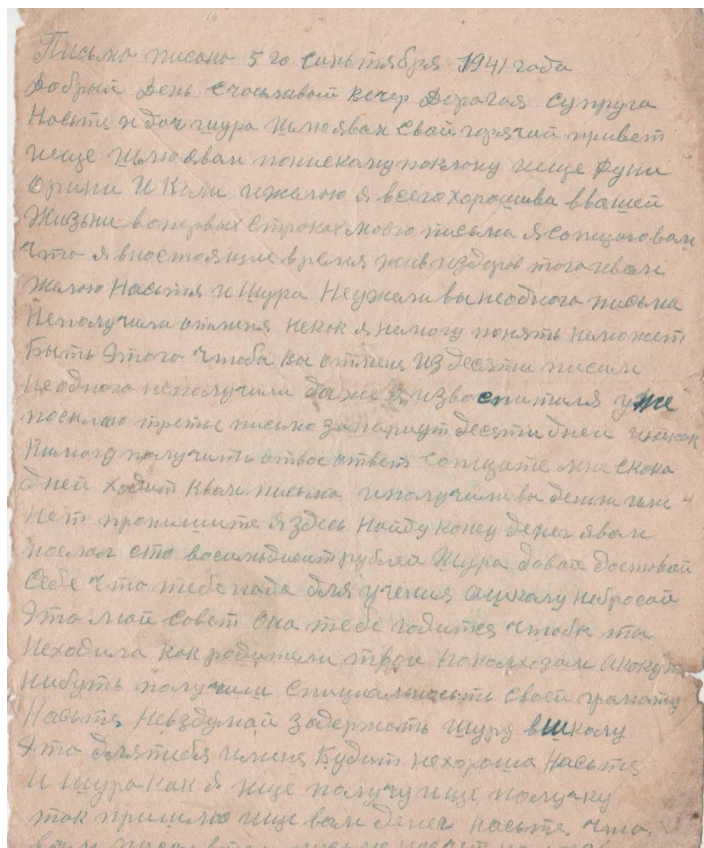 Письмо писано 5 го синьтября 1941 года
Добрый День счасливый вечер Дорогая супруга
Насьтя и доч шура шлю явам свой горячий привет
исще шьлю явам понискому поклону исще Фуни
орини И Кили ижелаю я всего хорошива ввашей
Жизьни вопервых строках моего письма я сопщаю вам
что я внастоящие время жив издоров тога ивам
желаю Насьтя и Шура Неужели вы необного письма
Неполучили отменя некак я немогу понять неможет
Быть Этого чтобы вы отменя Из десяти писим
неодного неполучили даже я извоспиталя уже
посылаю третье письмо
Нимогу получить отвас ответ сопщите мне скока
дней ходит Квам письмо иполучили вы деньги или
Нет пропишите я здесь Найду конец денег явам
послал сто восимьдисят рублей Шура давай доставай
Себе что тебе нада для учения ашколу небросай
Это мой совет она тебе годитса чтобы ты
Неходила как родители твои поколхозам
нибуть получили специальность своей грамоту
Насьтя невздумай задержать шуру вшколу
Это длятибя именя Будит нехороша Насьтя
И Шура как я ище получу ище получку
так пришлю ище вам денег насьтя что
вам